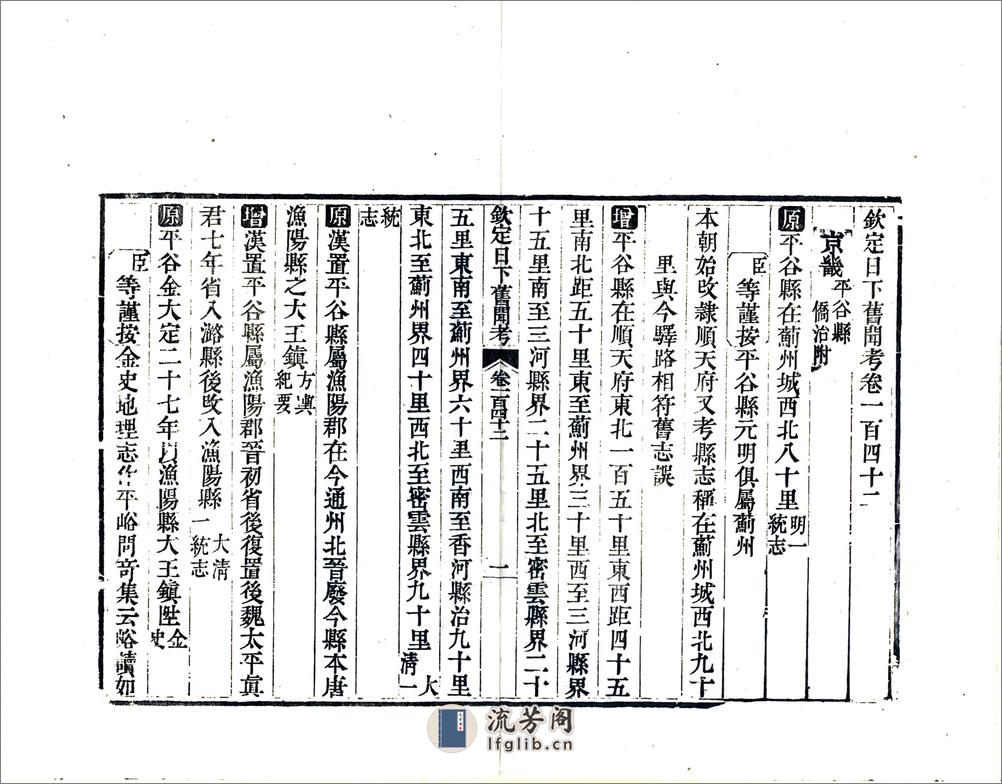 欽定日下舊聞考卷一百四十二
京畿平谷縣
僑治附
原平谷縣在薊州城西北八十里明一
統志
臣等謹按平谷縣元明俱屬薊州
本朝始改隸順天府又考縣志稱在薊州城西北九十
里與今驛路相符舊志誤
增平谷縣在順天府東北一百五十里東西距四十五
里南北距五十里東至薊州界三十里西至三河縣界
十五里南至三河縣界二十五里北至密雲縣界二十
欽定日下舊聞考 卷一百四十二 一
五里東南至薊州界六十里西南至香河縣治九十里
東北至薊州界四十里西北至密雲縣界九十里大
清一
統
志
原漢置平谷縣屬漁陽郡在今通州北晉廢今縣本唐
漁陽縣之大王鎮方輿
紀要
增漢置平谷縣屬漁陽郡晉初省後復置後魏太平眞
君七年省入潞縣後改入漁陽縣大清
一統志
原平谷金大定二十七年以漁陽縣大王鎮陞金
史
臣等謹按金史地理志作平峪問奇集云峪讀如
流芳阁
lfglib.cn